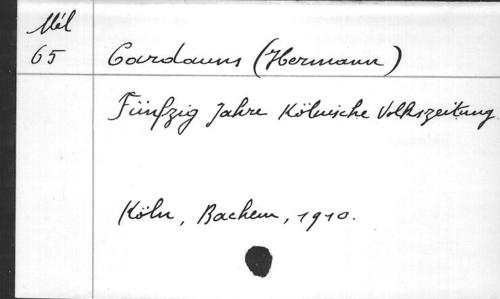 Mél
65 Cardauns (Hermann)
Fünfzig Jahre Kölnische Volkszeitung.
Köln, Bachem, 1910.